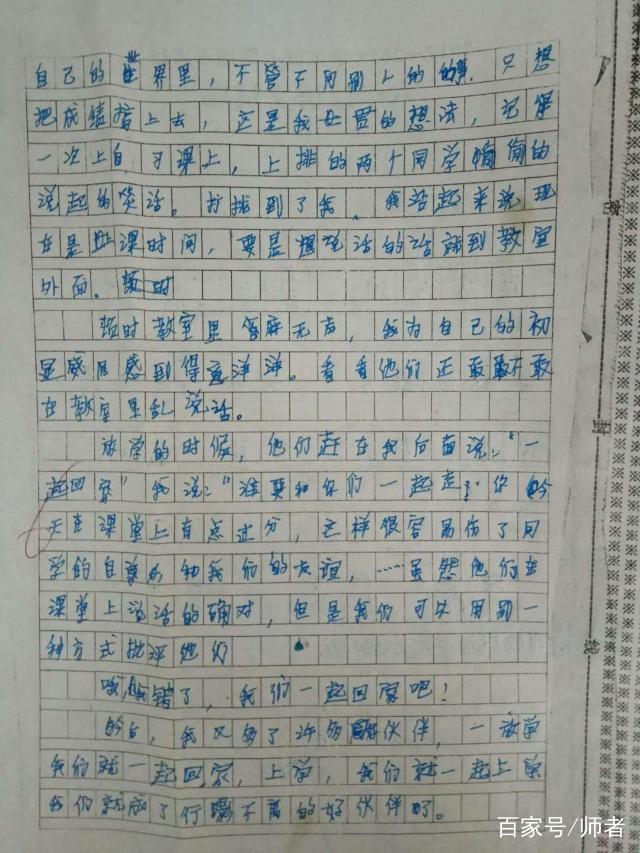 自己的世界里，不管不问别人的的事，只想
把成绩搞上去，这是我一贯的想法，记得
一次上自习课上，上排的两个同学偷偷的
说起的笑话。打扰到了我，我站起来说现
在是上课时间，要是想说话的话就到教室
外面。顿时
顿时教室里鸦雀无声，我为自己的初
显威风感到得意洋洋。看看他们正敢不敢
在教室里乱说话。
放学的时候，他们赶在我后面说："一
起回家"我说："谁要和你们一起走"你今
天在课堂上有点过分，这样很容易伤了同
学的自尊和我们的友谊，……虽然他们在
课堂上说话的确对，但是我们可以用别一
种方式批评他们
哦我错了，我们一起回家吧！
今日，我又多了许多伙伴，一放学
我们就一起回家，上学，我们就一起上学
我们就成了行影不离的好伙伴了。
密
封
线
百家号/师者